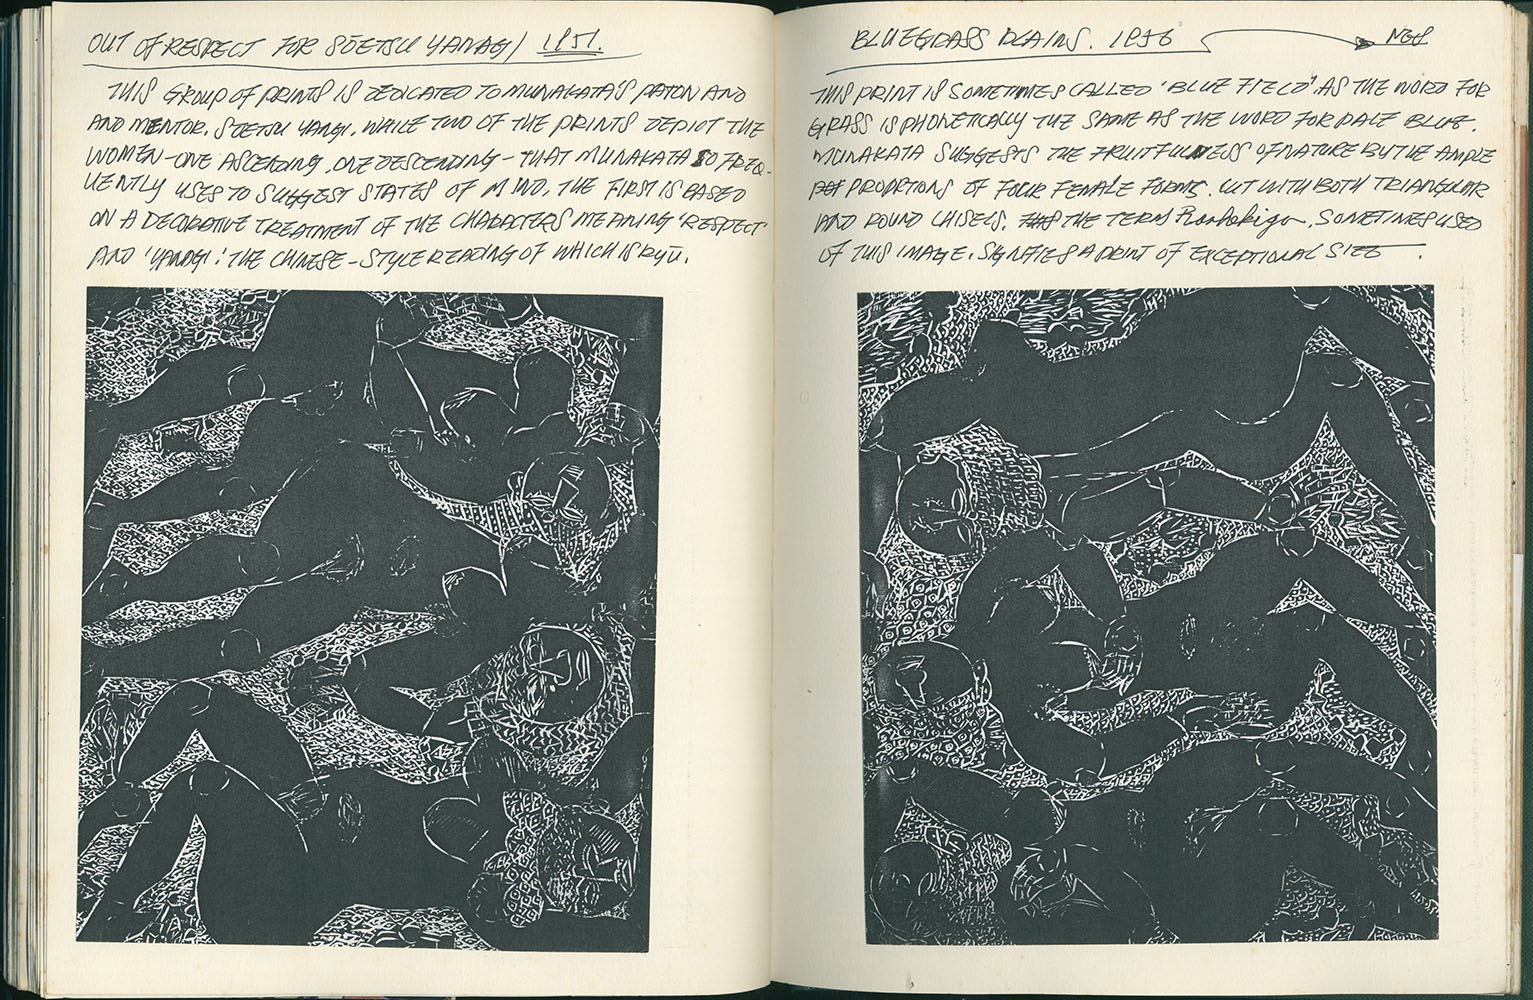 OUT OF RESPECT FOR SŌETSU YANAGI / 1951.
THIS GROUP OF PRINTS IS DEDICATED TO MUNAKATA'S PATON AND
AND MENTOR. SŌETSU YANGI. WHILE TWO OF THE PRINTS DEPICT THE
WOMEN - ONE ASCENDING, ONE DESCENDING - THAT MUNAKATA SO FREQ-
UENTLY USES TO SUGGEST STATES OF MIND. THE FIRST IS BASED
ON A DECORATIVE TREATMENT OF THE CHARACTERS MEANING 'RESPECT'
AND 'YANAGI'. THE CHINESE - STYLE READING OF WHICH IS RYŪ.
BLUEGRASS PLAINS. 1956
THIS PRINT IS SOMETIMES CALLED 'BLUE FIELD'. AS THE WORD FOR
GRASS IS PHONETICALLY THE SAME AS THE WORD FOR PALE BLUE.
MUNAKATA SUGGESTS THE FRUITFULNESS OF NATURE BY THE AMPLE
PROPRTIONS OF FOUR FEMALE FORMS. CUT WITH BOTH TRIANGULAR
AND ROUND CHISELS. THE TERM SOMETIMES USED
OF THIS IMAGE. SIGNIFIES A PRINT OF EXCEPTIONAL SIZE.